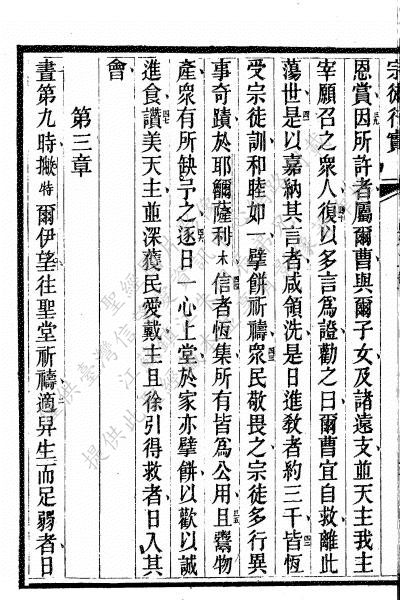 宗徒行實
恩賞因所許者屬爾曹與爾子女及諸遠支並天主我主
宰願召之衆人復以多言爲證勸之曰爾曹宜自救離此
蕩世是以嘉納其言者咸領洗是日進敎者約三千皆恆
受宗徒訓和睦如一擘餅祈禱衆民敬畏之宗徒多行異
事奇蹟於耶爾薩利木信者恆集所有皆爲公用且鬻物
產衆有所缺予之逐日一心上堂於家亦擘餅以歡以誠
進食讚美天主並深獲民愛戴主且徐引得救者日入其
會
第三章
晝第九時撇特爾伊望往聖堂祈禱適昇生而足弱者日